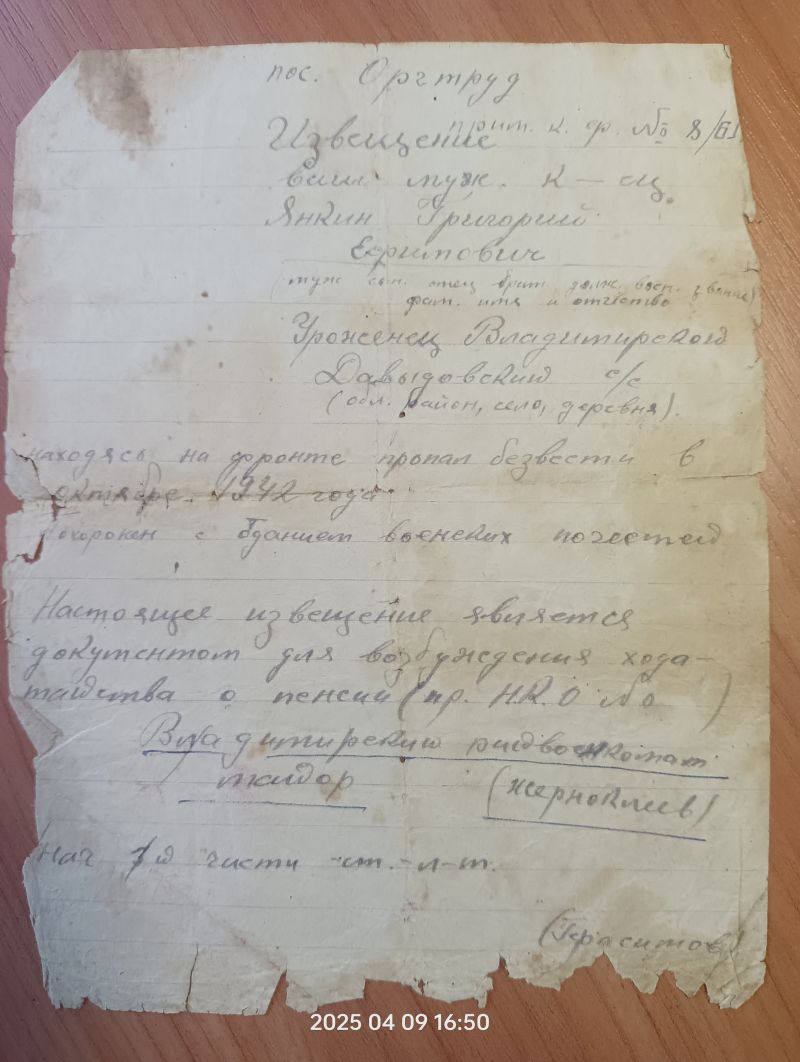 пос. Оргтруд
прим. к. ф. № 8/
Извещение
Ваш муж. к-ец
Янкин Григорий
Ефимович
(муж сын отец брат долж. воен. звание)
фам. имя и отчество
Уроженец Владимирской
Давыдовский с/с
(обл. район, село, деревня).
находясь на фронте пропал безвести в
октябре 1942 года
похоронен с отданием военских почестей
Настоящее извещение является
документом для возбуждения хода-
тайства о пенсии (пр. НКО №  )
Владимирский райвоенкомат
майор (Жерноклеев)
нач 1й части -ст.-л-т.
(Герасимов)
2025 04 09 16:50